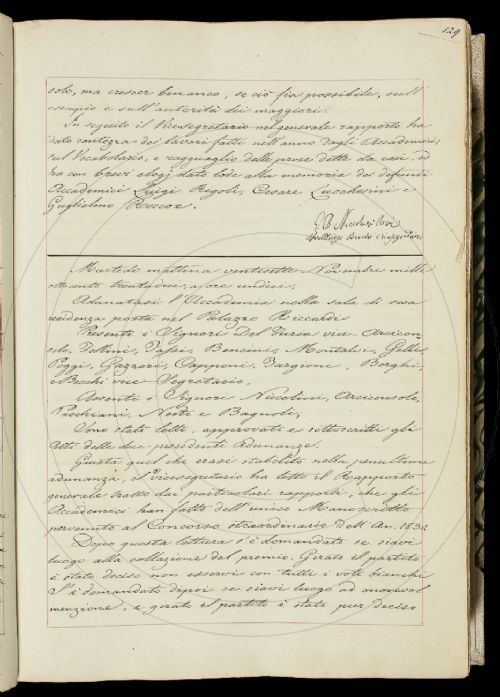 129
solo, ma crescer benanco, se ciò fia possibile, sull'
esempio e sull'autorità dei maggiori.
In seguito il Vicesegretario nel generale rapporto ha
dato contezza dei lavori fatti nell'anno dagli Accademici
sul Vocabolario, e ragguaglio delle prose dette da essi, ed
ha con brevi elogj dato lode alla memoria dei defunti
Accademici Luigi Rigoli, Cesare Lucchesini e
Guglielmo Roscoe.
G. B. Niccolini
Becchi
Martedì mattina ventisette Novembre mille
ottocento trentadue, a ore undici.
Adunatasi l'Accademia nella sala di sua
residenza posta nel Palazzo Riccardi
Presenti i Signori Del Furia vice-Arcicon-
solo, Follini, Tassi, Bencini, Montalvi, Gelli,
Poggi, Gazzeri, Capponi, Targioni, Borghi,
e Becchi vice-Segretario,
Assenti i Signori Niccolini, Arciconsolo,
Parchiani, Nesti e Bagnoli,
Sono stati letti, approvati e sottoscritti gli
Atti delle due precedenti Adunanze.
Giusta quel che erasi stabilito nella penultima
adunanza, il Vicesegretario ha letto il Rapporto
generale tratto dai particolari rapporti, che gli
Accademici han fatto dell'unico Manoscritto
pervenuto al Concorso straordinario dell'An. 1830.
Dopo questa lettura s'è domandato se siavi
luogo alla collazione del premio. Girato il partito
è stato deciso non esservi con tutti i voti bianchi.
S'è domandato dipoi se siavi luogo ad onorevol
menzione, e girato il partito è stato pur deciso